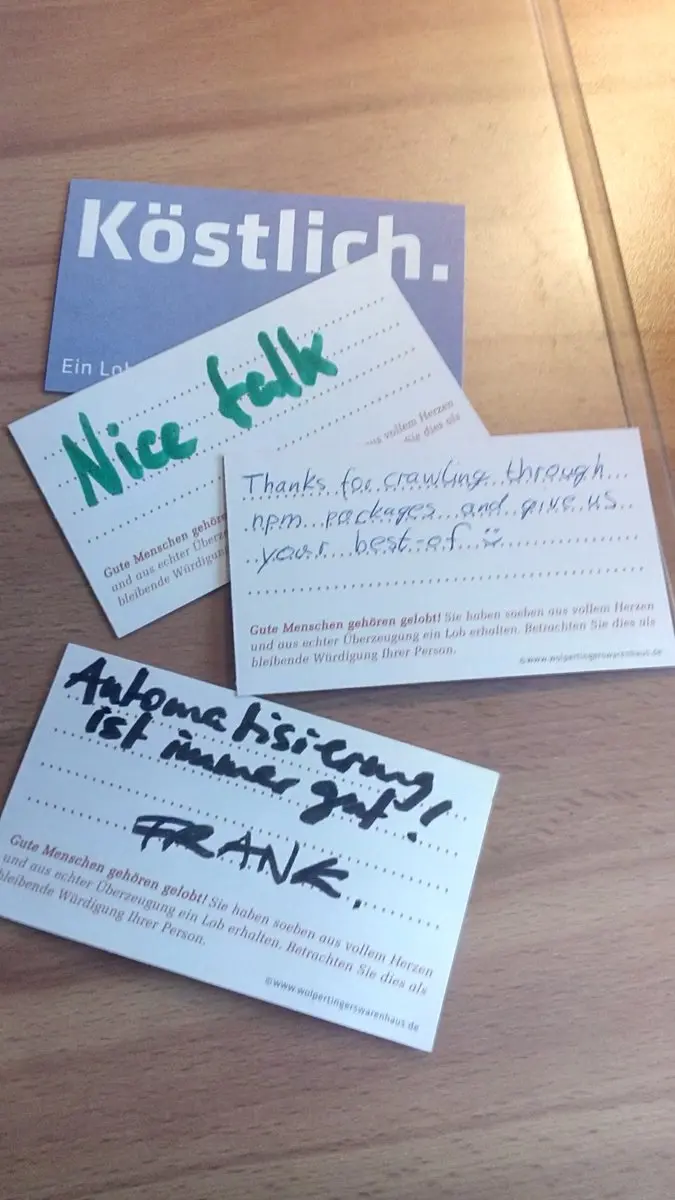 Köstlich.
Ein Lob
Nice talk
us vollem Herzen
Sie dies als
Gute Menschen gehöre
und aus echter Überze
bleibende Würdigung
Thanks for crawling through
npm packages and give us
your best-of :)
Gute Menschen gehören gelobt! Sie haben soeben aus vollem Herzen
und aus echter Überzeugung ein Lob erhalten. Betrachten Sie dies als
bleibende Würdigung Ihrer Person.
©www.wolpertingerswarenhaus.de
Automatisierung
ist immer gut!
FRANK.
Gute Menschen gehören gelobt! Sie haben soeben aus vollem Herzen
und aus echter Überzeugung ein Lob erhalten. Betrachten Sie dies als
bleibende Würdigung Ihrer Person.
©www.wolpertingerswarenhaus.de